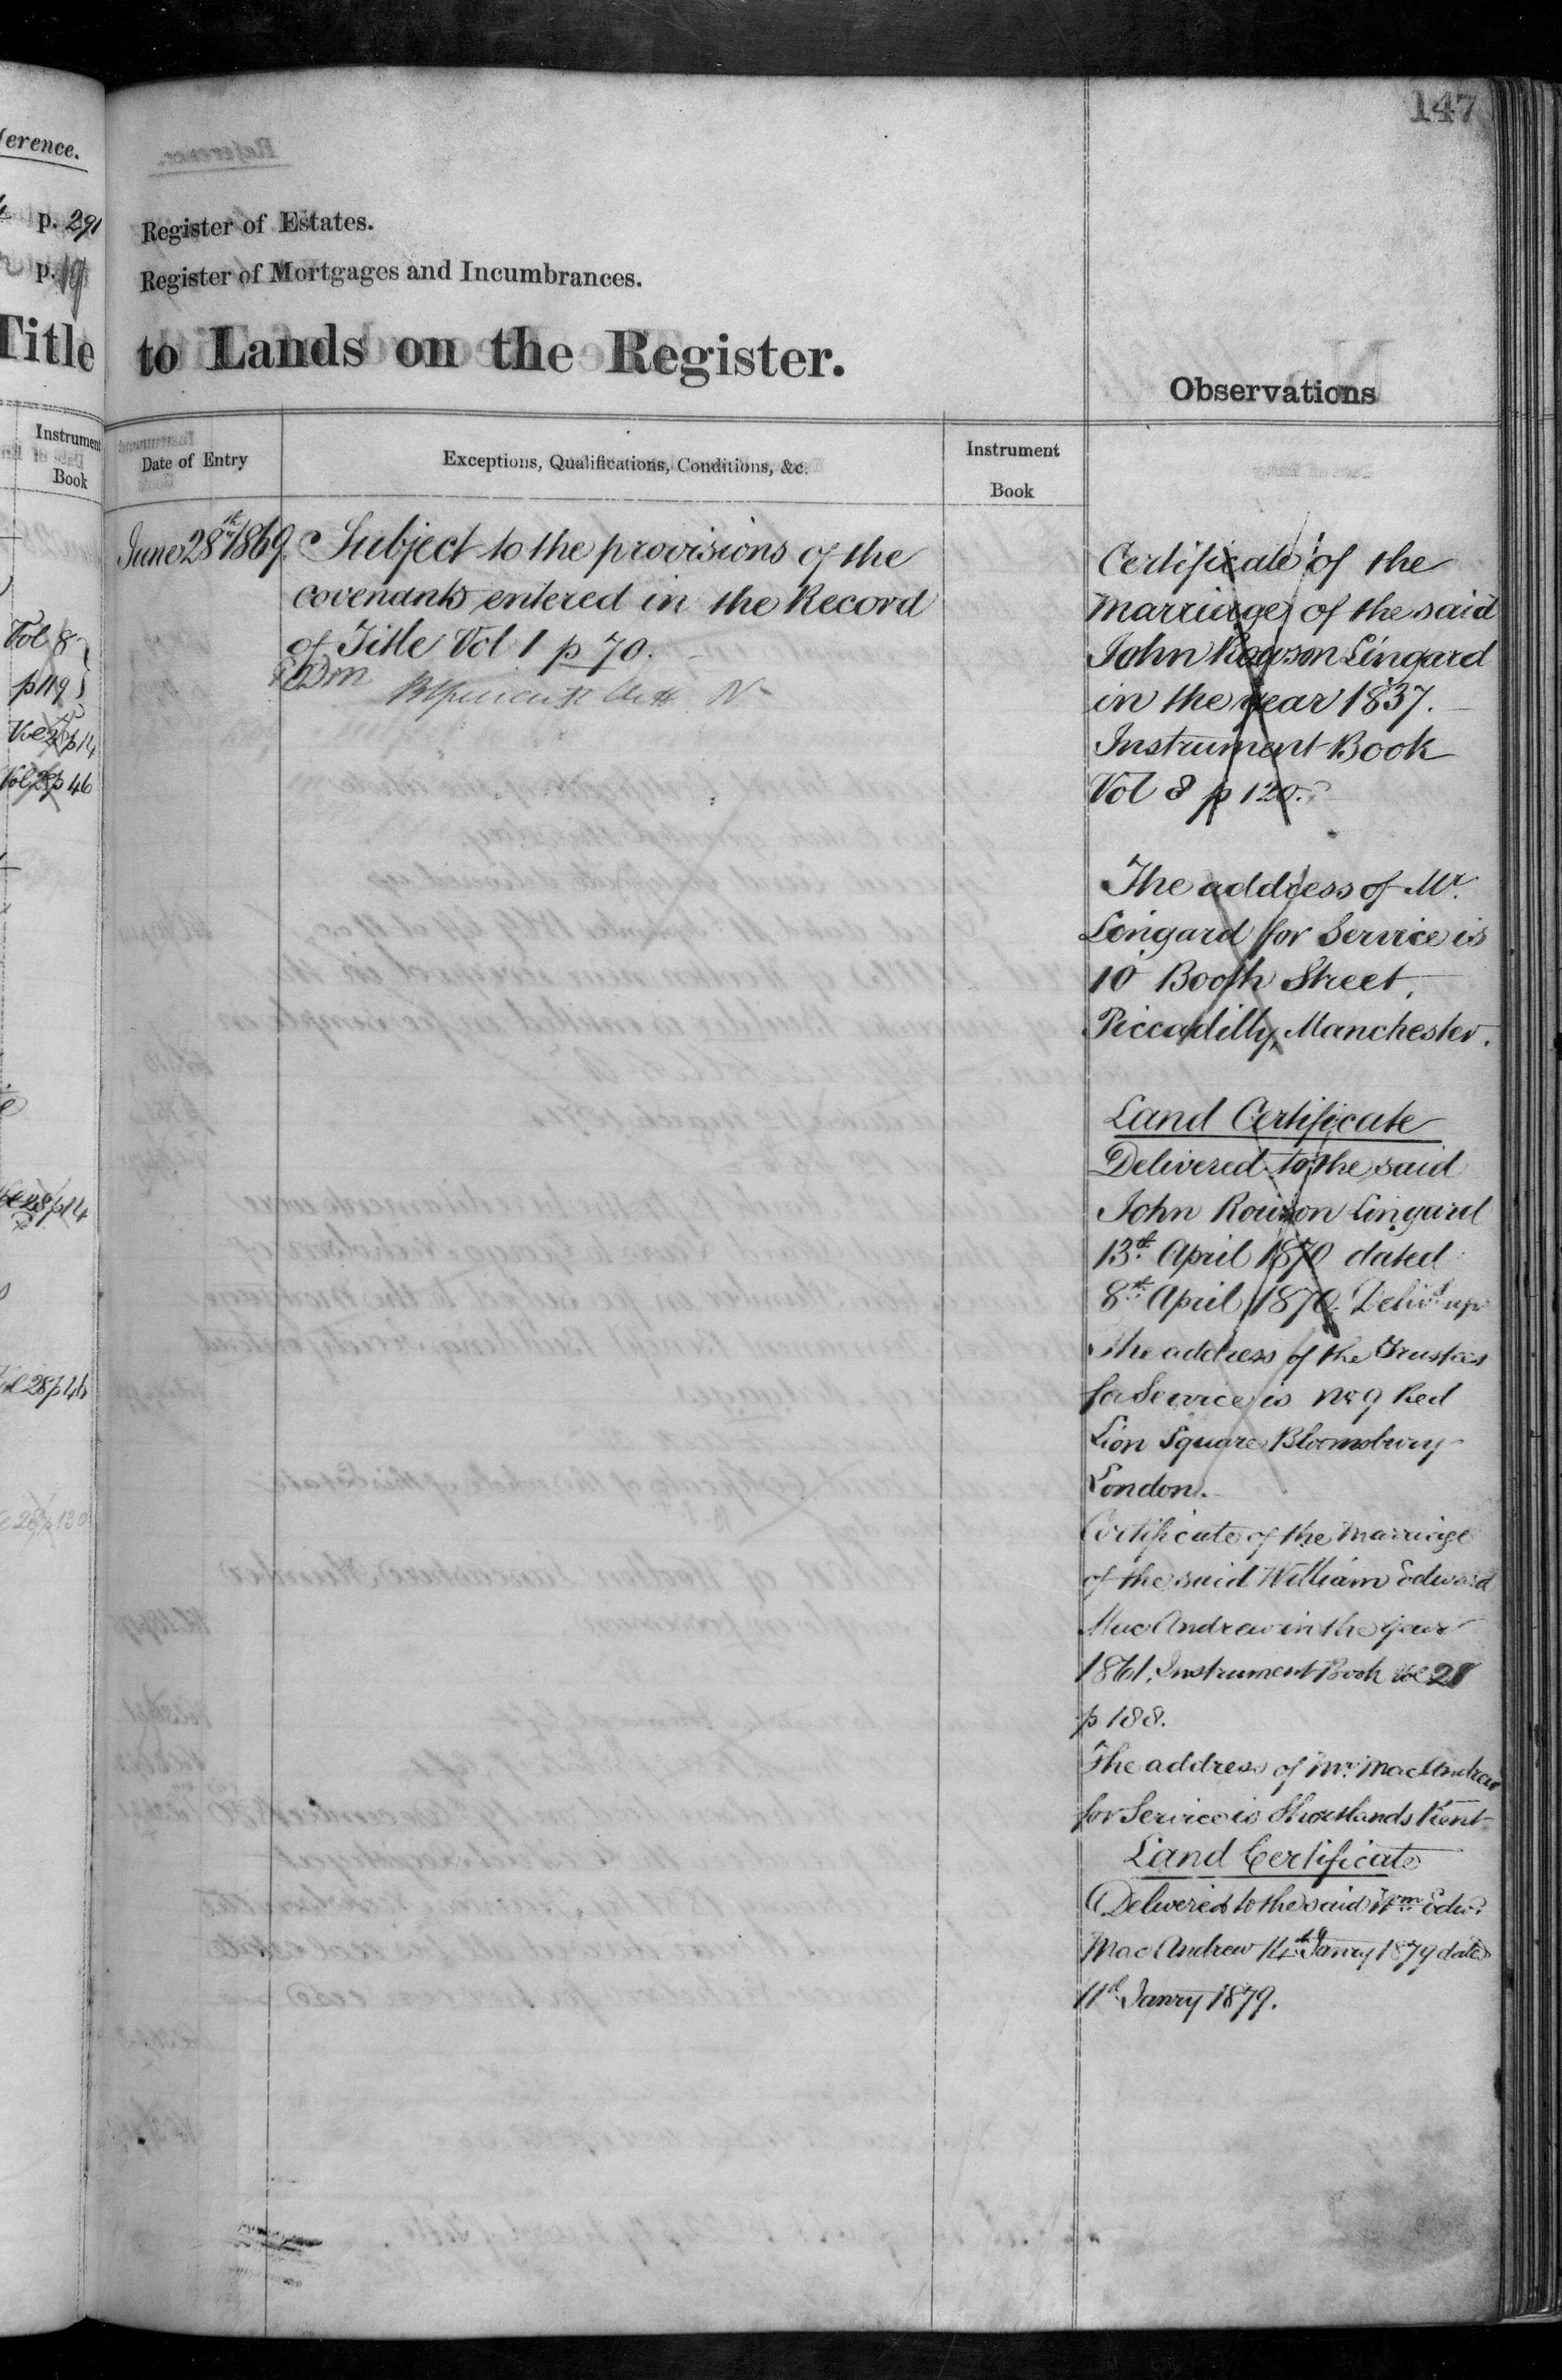 147
erence.
p. 291
p. 19
Title
Instrument
Book
Vol 8
p 119
Vol 28 p 14
Vol 28 p 46
Vol 28 p 14
Vol 28 p 46
Register of Estates.
Register of Mortgages and Incumbrances.
to Lands on the Register.
Observations
Date of Entry
Exceptions, Qualifications, Conditions, &c.
Instrument
Book
June 28th 1869.
Subject to the provisions of the
covenants entered in the Record
of Title Vol 1 p 70.
Certificate of the
Marriage of the said
John Rowson Lingard
in the year 1837.
Instrument Book
Vol 8 p 120.
The address of Mr.
Lingard for Service is
10 Booth Street,
Piccadilly, Manchester.
Land Certificate
Delivered to the said
John Rowson Lingard
13th April 1870 dated
8th April 1870. Delivd up
The address of the Trustees
for Service is No 9 Red
Lion Square Bloomsbury
London.
Certificate of the Marriage
of the said William Edward
MacAndrew in the year
1861, Instrument Book Vol 28
p 188.
The address of Mr. MacAndrew
for Service is Shortlands Kent
Land Certificate
Delivered to the said Wm Edwd
MacAndrew 14th Janry 1879 dated
11th Janry 1879.